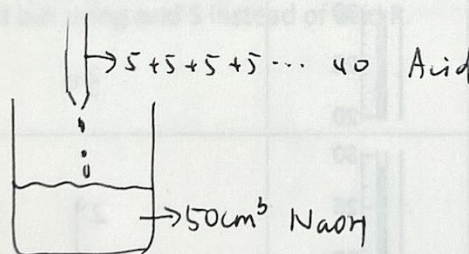 → 5 + 5 + 5 + 5 ... 40 Acid
→ 50cm³ NaOH